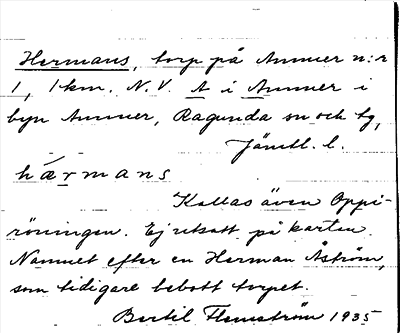 Hermans, torp på Ammer n:r
1, 1 km. N.V. A i Ammer i
byn Ammer, Ragunda sn och tg,
Jämtl. l.
hærmans
Kallas även Oppi-
röningen. Ej utsatt på kartan.
Namnet efter en Herman Åström,
som tidigare bebott torpet.
Bertil Flemström 1935